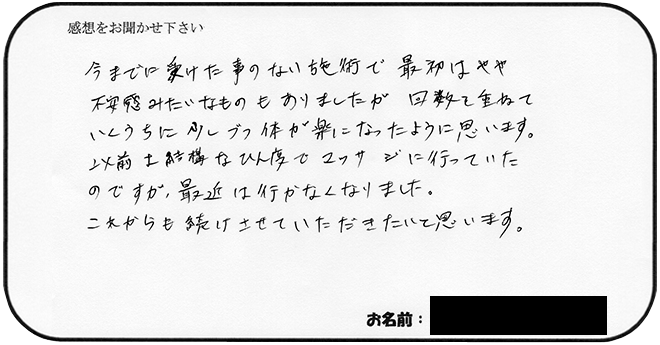 感想をお聞かせ下さい
今までに受けた事のない施術で 最初はやや
不安感みたいなものもありましたが 回数を重ねて
いくうちに少しづつ体が楽になったように思います。
以前は結構なひん度でマッサージに行っていた
のですが、最近は行かなくなりました。
これからも続けさせていただきたいと思います。
お名前：